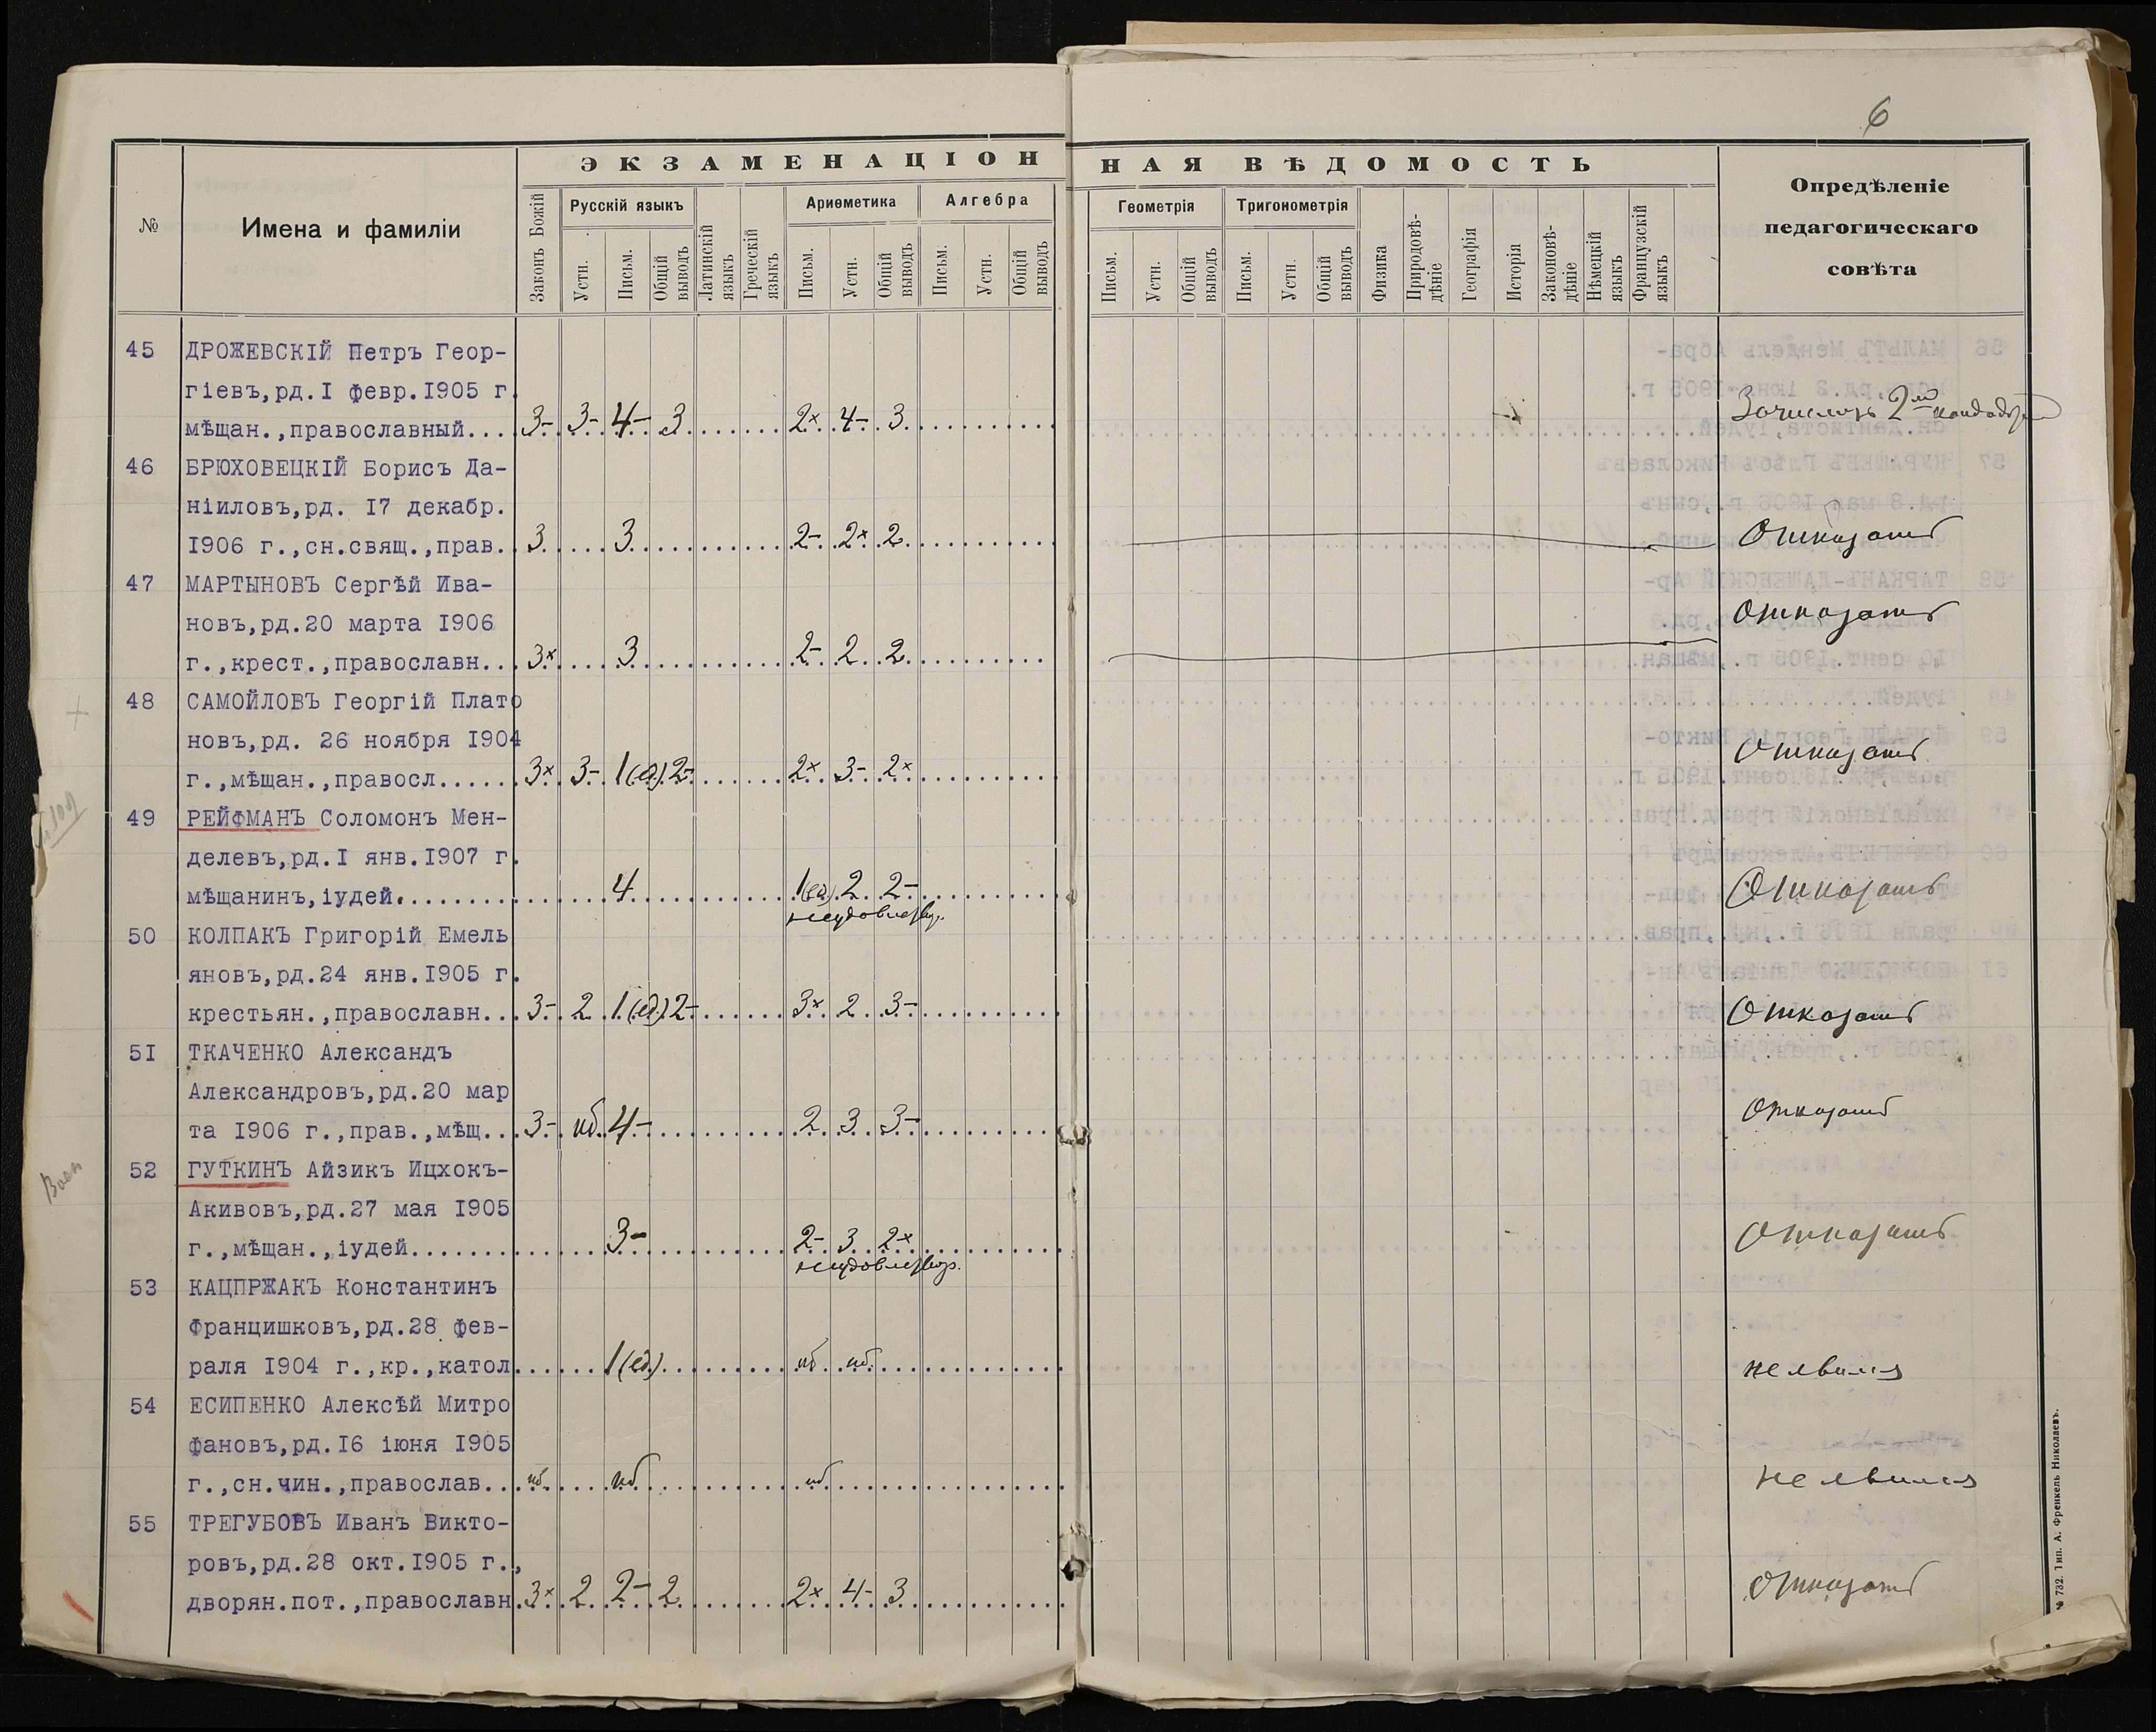 6
ЭКЗАМЕНАЦІОННАЯ ВѢДОМОСТЬ
№
Имена и фамиліи
Законъ Божій
Русскій языкъ
Устн.
Письм.
Общій выводъ
Латинскій языкъ
Греческій языкъ
Ариѳметика
Письм.
Устн.
Общій выводъ
Алгебра
Письм.
Устн.
Общій выводъ
Геометрія
Письм.
Устн.
Общій выводъ
Тригонометрія
Письм.
Устн.
Общій выводъ
Физика
Природовѣдѣніе
Географія
Исторія
Законовѣдѣніе
Нѣмецкій языкъ
Французскій языкъ
Опредѣленіе
педагогическаго
совѣта
45 ДРОЖЕВСКІЙ Петръ Геор-
гіевъ,рд.I февр.I905 г.
мѣщан.,православный.... 3- 3- 4- 3 2x 4- 3 Зачисленъ 2мъ кандидат
46 БРЮХОВЕЦКІЙ Борисъ Да-
ніиловъ,рд. I7 декабр.
I906 г.,сн.свящ.,прав.. 3 3 2- 2x 2 Отказать
47 МАРТЫНОВЪ Сергѣй Ива-
новъ,рд.20 марта I906
г.,крест.,православн... 3x 3 2- 2 2 Отказать
48 САМОЙЛОВЪ Георгій Плато
новъ,рд. 26 ноября I904
г.,мѣщан.,правосл...... 3x 3- 1(ед.) 2- 2x 3- 2x Отказать
49 РЕЙФМАНЪ Соломонъ Мен-
делевъ,рд.I янв.I907 г.
мѣщанинъ,іудей......... 4 1(ед.) 2 2- Отказать
неудовлетвор.
50 КОЛПАКЪ Григорій Емель
яновъ,рд.24 янв.I905 г.
крестьян.,православн... 3- 2 1(ед.) 2- 3x 2 3- Отказать
5I ТКАЧЕНКО Александъ
Александровъ,рд.20 мар
та I906 г.,прав.,мѣщ... 3- нб. 4- 2 3 3- Отказать
52 ГУТКИНЪ Айзикъ Ицхокъ-
Акивовъ,рд.27 мая I905
г.,мѣщан.,іудей........ 3- 2- 3 2x Отказать
неудовлетвор.
53 КАЦПРЖАКЪ Константинъ
Францишковъ,рд.28 фев-
раля I904 г.,кр.,катол. 1(ед.) нб нб. не явился
54 ЕСИПЕНКО Алексѣй Митро
фановъ,рд.I6 іюня I905
г.,сн.чин.,православ... нб. нб нб не явился
55 ТРЕГУБОВЪ Иванъ Викто-
ровъ,рд.28 окт.I905 г.,
дворян.пот.,православн. 3x 2 2- 2 2x 4- 3 Отказать
№ 732. Тип. А. Френкель Николаевъ.